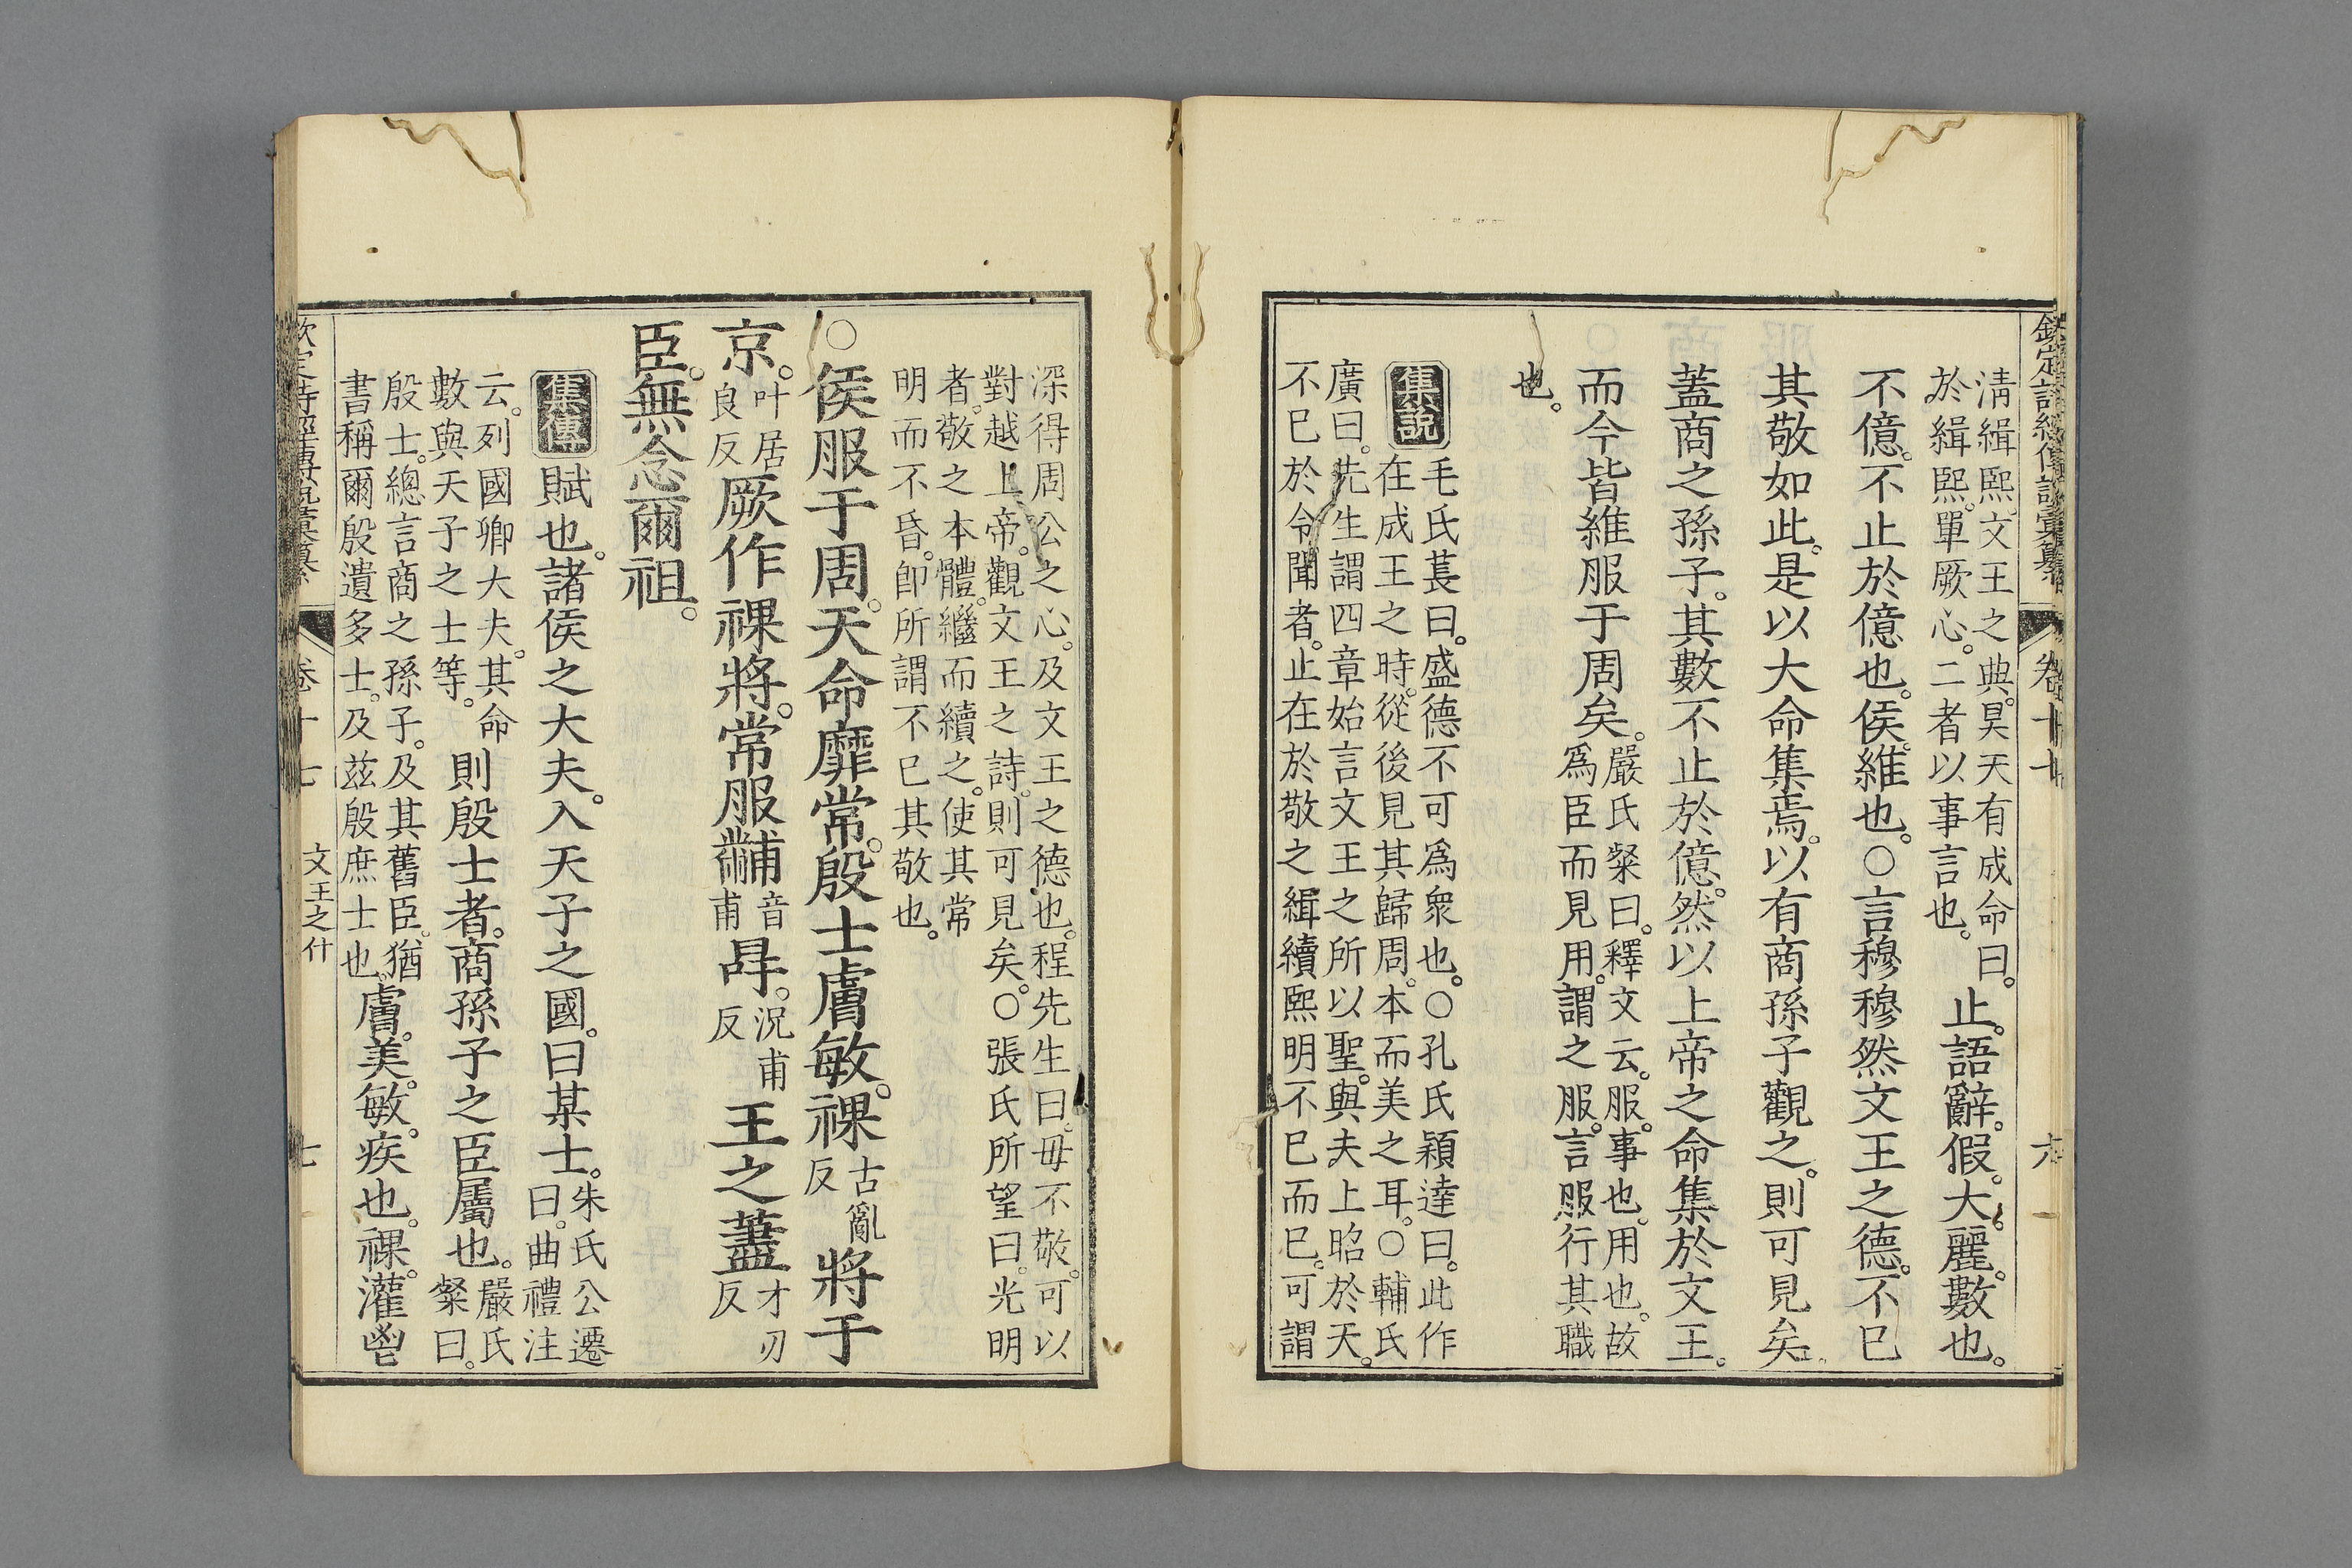 欽定詩經傳說彙纂 卷十七 六
清緝熙。文王之典。昊天有成命曰。
於緝熙。單厥心。二者以事言也。
止。語辭。假。大。麗。數也。
不億。不止於億也。侯。維也。○言穆穆然文王之德。不已
其敬如此。是以大命集焉。以有商孫子觀之。則可見矣。
蓋商之孫子。其數不止於億。然以上帝之命集於文王。
而今皆維服于周矣。
嚴氏粲曰。釋文云。服。事也。用也。故
爲臣而見用。謂之服。言服行其職
也。
集說
毛氏萇曰。盛德不可爲衆也。○孔氏穎達曰。此作
在成王之時。從後見其歸周。本而美之耳。○輔氏
廣曰。先生謂四章始言文王之所以聖。與夫上昭於天。
不已於令聞者。止在於敬之緝續熙明不已而已。可謂
深得周公之心。及文王之德也。程先生曰。毋不敬。可以
對越上帝。觀文王之詩。則可見矣。○張氏所望曰。光明
者。敬之本體。繼而續之。使其常
明而不昏。卽所謂不已其敬也。
○侯服于周。天命靡常。殷士膚敏。祼
古亂
反
將于
京。
叶居
良反
厥作祼將。常服黼
音
甫
冔。
況甫
反
王之藎
才刃
反
臣。無念爾祖。
集傳
賦也。諸侯之大夫。入天子之國。曰某士。
朱氏公遷
曰。曲禮注
云。列國卿大夫。其命
數與天子之士等。
則殷士者。商孫子之臣屬也。
嚴氏
粲曰。
殷士。總言商之孫子。及其舊臣。猶
書稱爾殷遺多士。及茲殷庶士也。
膚。美。敏。疾也。祼。灌鬯
欽定詩經傳說彙纂 卷十七 文王之什 七